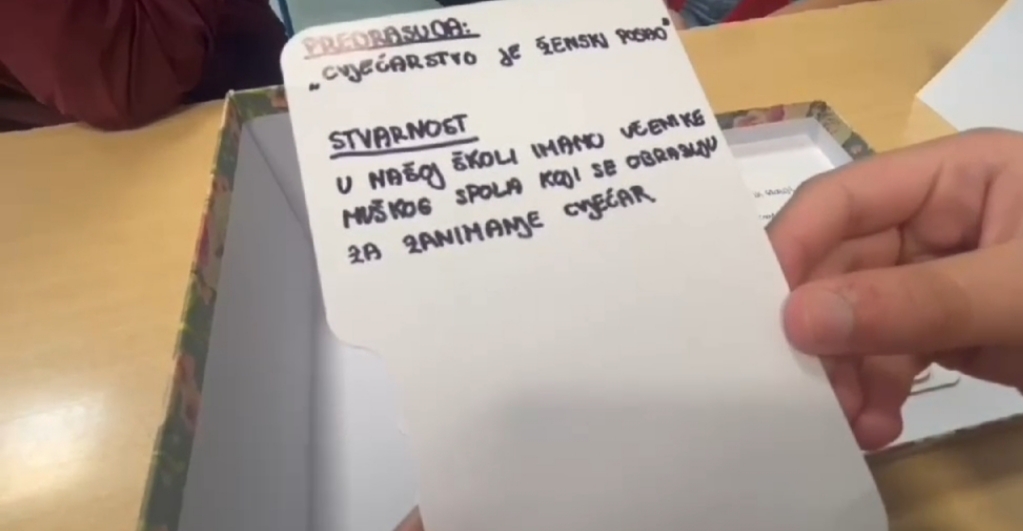 PREDRASUDA:
„CVJEĆARSTVO JE ŽENSKI POSAO"
STVARNOST
U NAŠOJ ŠKOLI IMAMO UČENIKE
MUŠKOG SPOLA KOJI SE OBRAZUJU
ZA ZANIMANJE CVJEĆAR